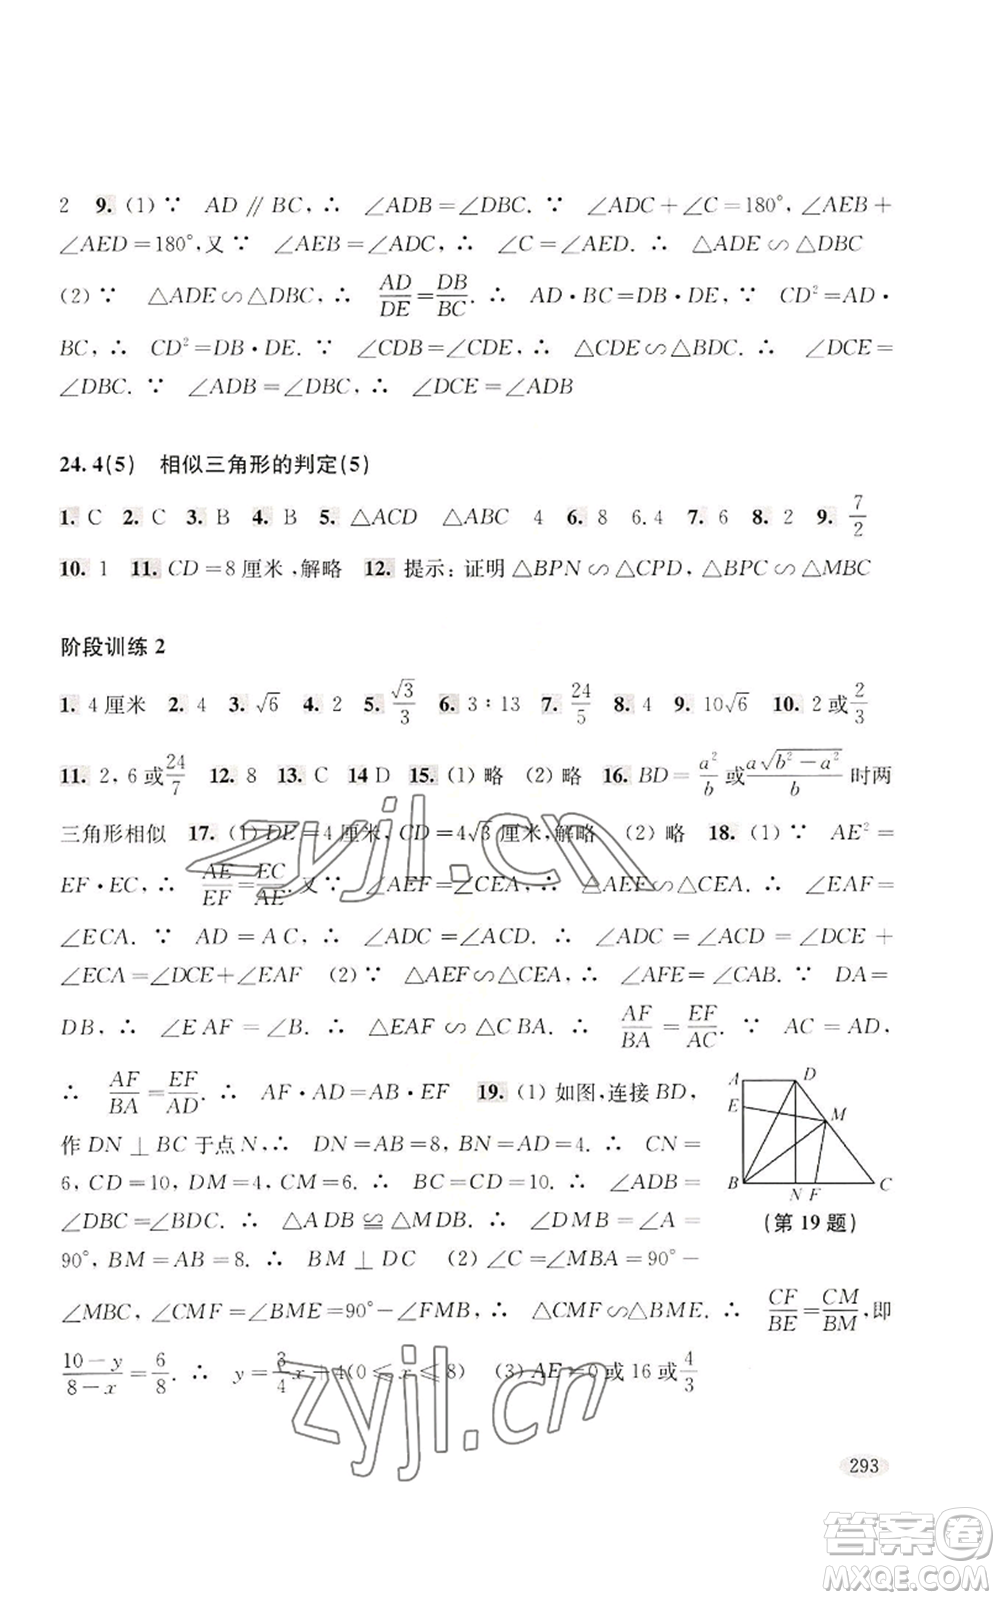 2 9. (1) ∵ AD∥BC, ∴ ∠ADB=∠DBC. ∵ ∠ADC+∠C=180°, ∠AEB+
∠AED=180°, 又 ∵ ∠AEB=∠ADC, ∴ ∠C=∠AED. ∴ △ADE∽△DBC
(2) ∵ △ADE∽△DBC, ∴ AD/DE=DB/BC. ∴ AD·BC=DB·DE, ∵ CD²=AD·
BC, ∴ CD²=DB·DE. ∵ ∠CDB=∠CDE, ∴ △CDE∽△BDC. ∴ ∠DCE=
∠DBC. ∵ ∠ADB=∠DBC, ∴ ∠DCE=∠ADB
24.4(5) 相似三角形的判定(5)
1. C 2. C 3. B 4. B 5. △ACD △ABC 4 6. 8 6.4 7. 6 8. 2 9. 7/2
10. 1 11. CD=8厘米,解略 12. 提示:证明△BPN∽△CPD, △BPC∽△MBC
阶段训练2
1. 4厘米 2. 4 3. √6 4. 2 5. √3/3 6. 3∶13 7. 24/5 8. 4 9. 10√6 10. 2或2/3
11. 2, 6或24/7 12. 8 13. C 14 D 15. (1) 略 (2) 略 16. BD=a²/b或a√(b²-a²)/b时两
三角形相似 17. (1) DE=4厘米, CD=4√3厘米,解略 (2) 略 18. (1) ∵ AE²=
EF·EC, ∴ AE/EF=EC/AE. 又 ∵ ∠AEF=∠CEA, ∴ △AEF∽△CEA. ∴ ∠EAF=
∠ECA. ∵ AD=AC, ∴ ∠ADC=∠ACD. ∴ ∠ADC=∠ACD=∠DCE+
∠ECA=∠DCE+∠EAF (2) ∵ △AEF∽△CEA, ∴ ∠AFE=∠CAB. ∵ DA=
DB, ∴ ∠EAF=∠B. ∴ △EAF∽△CBA. ∴ AF/BA=EF/AC. ∵ AC=AD,
∴ AF/BA=EF/AD. ∴ AF·AD=AB·EF 19. (1) 如图,连接BD,
作DN⊥BC于点N, ∴ DN=AB=8, BN=AD=4. ∴ CN=
6, CD=10, DM=4, CM=6. ∴ CD=BC. ∴ ∠ADB=
∠DBC=∠BDC. ∴ △ADB≌△MDB. ∴ ∠DMB=∠A=
90°, BM=AB=8. ∴ BM⊥DC (2) ∠C=∠MBA=90°-
∠MBC, ∠CMF=∠BME=90°-∠FMB, ∴ △CMF∽△BME. ∴ CF/BE=CM/BM, 即
(10-y)/(8-x)=6/8. ∴ y=3/4x+4(0≤x≤8) (3) AE=0或16或4/3
A D
E M
B N F C
(第19题)
293
zyjl.cn
zyjl.cn
答案卷
MXQE.COM